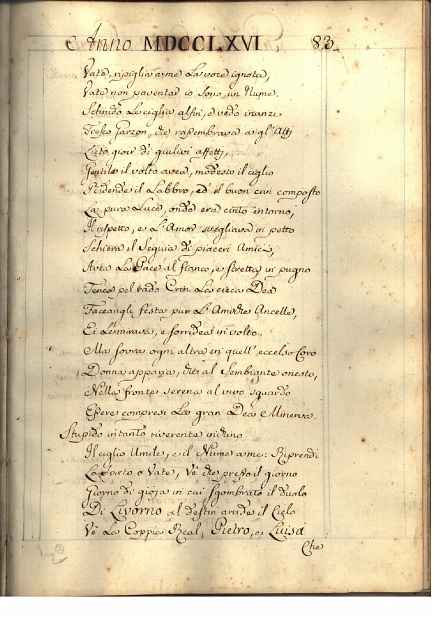 Anno MDCCLXVI 83.
Vate, ripiglia a me La voce ignota,
Vate non paventar io sono un Nume.
Schiudo Le ciglia alfin, e vedo inanzi
Fresco garzon, che rassembrava agl' Atti
Lieto gioir di giulivi affetti,
Gentile il volto avea, modesto il ciglio
Ridende il Labbro, d' il buon crin composto
La pura Luce, onde era cinto intorno,
Il rispetto, e L'Amor svegliava in petto
Schiera il Seguia di piaceri Amici,
Avea La Pace al fianco, e stretta in pugno
Tenea pel rado Crin La cieca Dea
Faceangli festa pur L' Ancelle,
Ei Le mirava, e sorridea in volto.
Ma sovra ogni altra in quell' eccelso Coro
Donna apparia, che al Sembiante onesto,
Nella fronte serena al vivo sguardo
Essere compresi La gran Dea Minerva.
Stupido intanto riverente inchino
Il ciglio Umile, e il Nume a me: Riprendi
Le o Vate, Ve' che presso il giorno
Giorno di gioja in cui sgombrato il duolo
Di Livorno al destin arride il Cielo
Ve' La Coppia Real, Pietro, e Luisa
Che